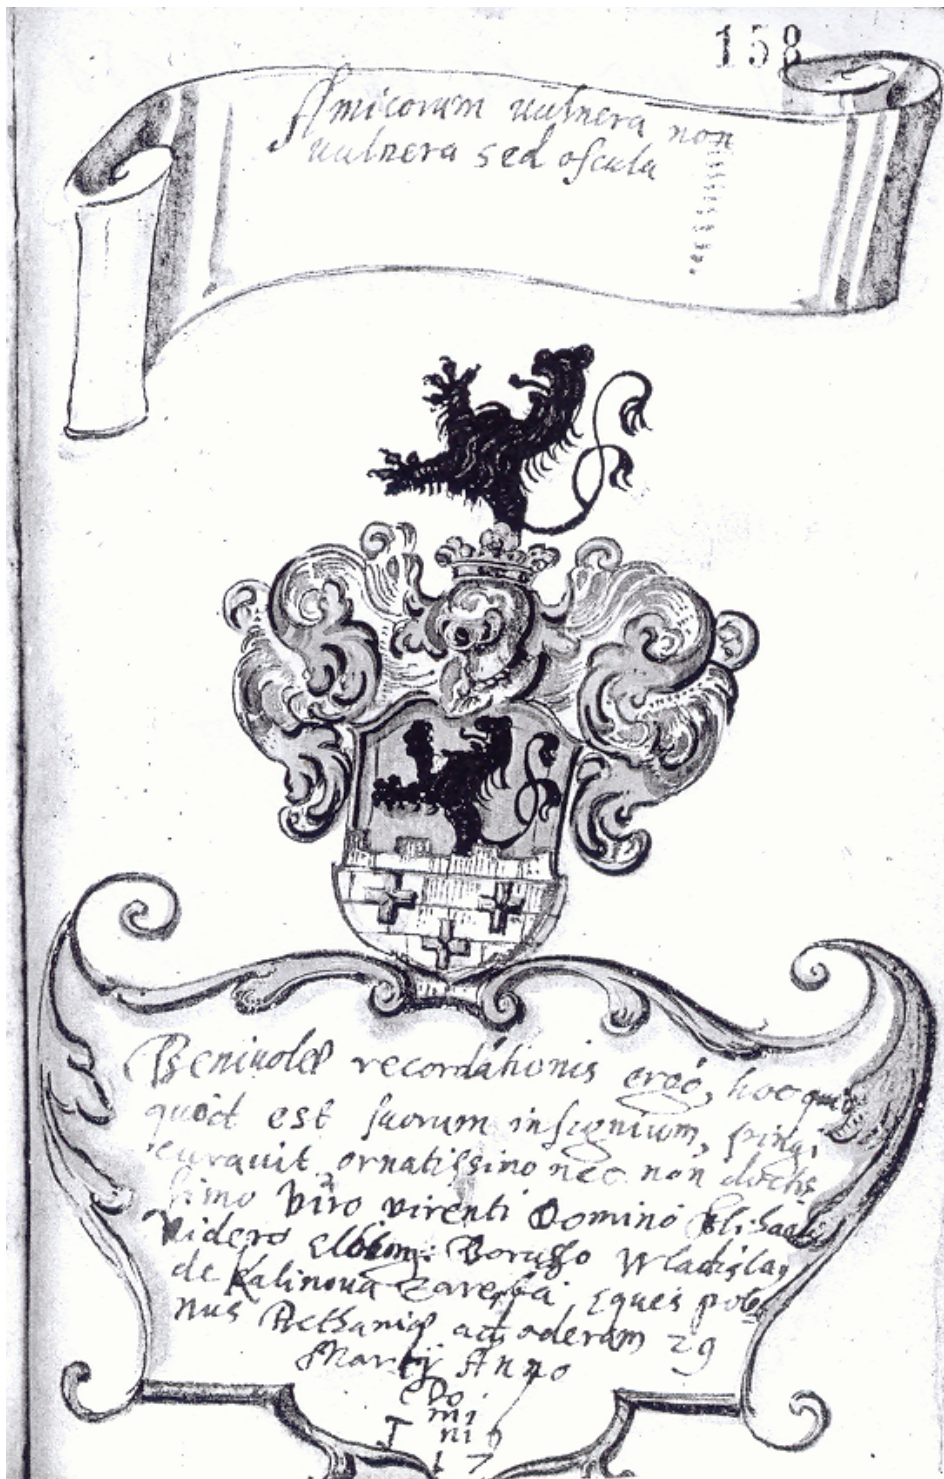 158
Amicorum vulnera non
vulnera sed oscula
Benivolæ recordationis ergo, hoc quid
quod est suorum insignium, pingi
curavit ornatissimo nec non doctis
simo Viro virenti Domino
Borusso Wladisla,
de Kalinova Zareſba, Eques polo
nus Bethaniæ ad oderam 29
Martij Anno
Do
mi
ni
1 7